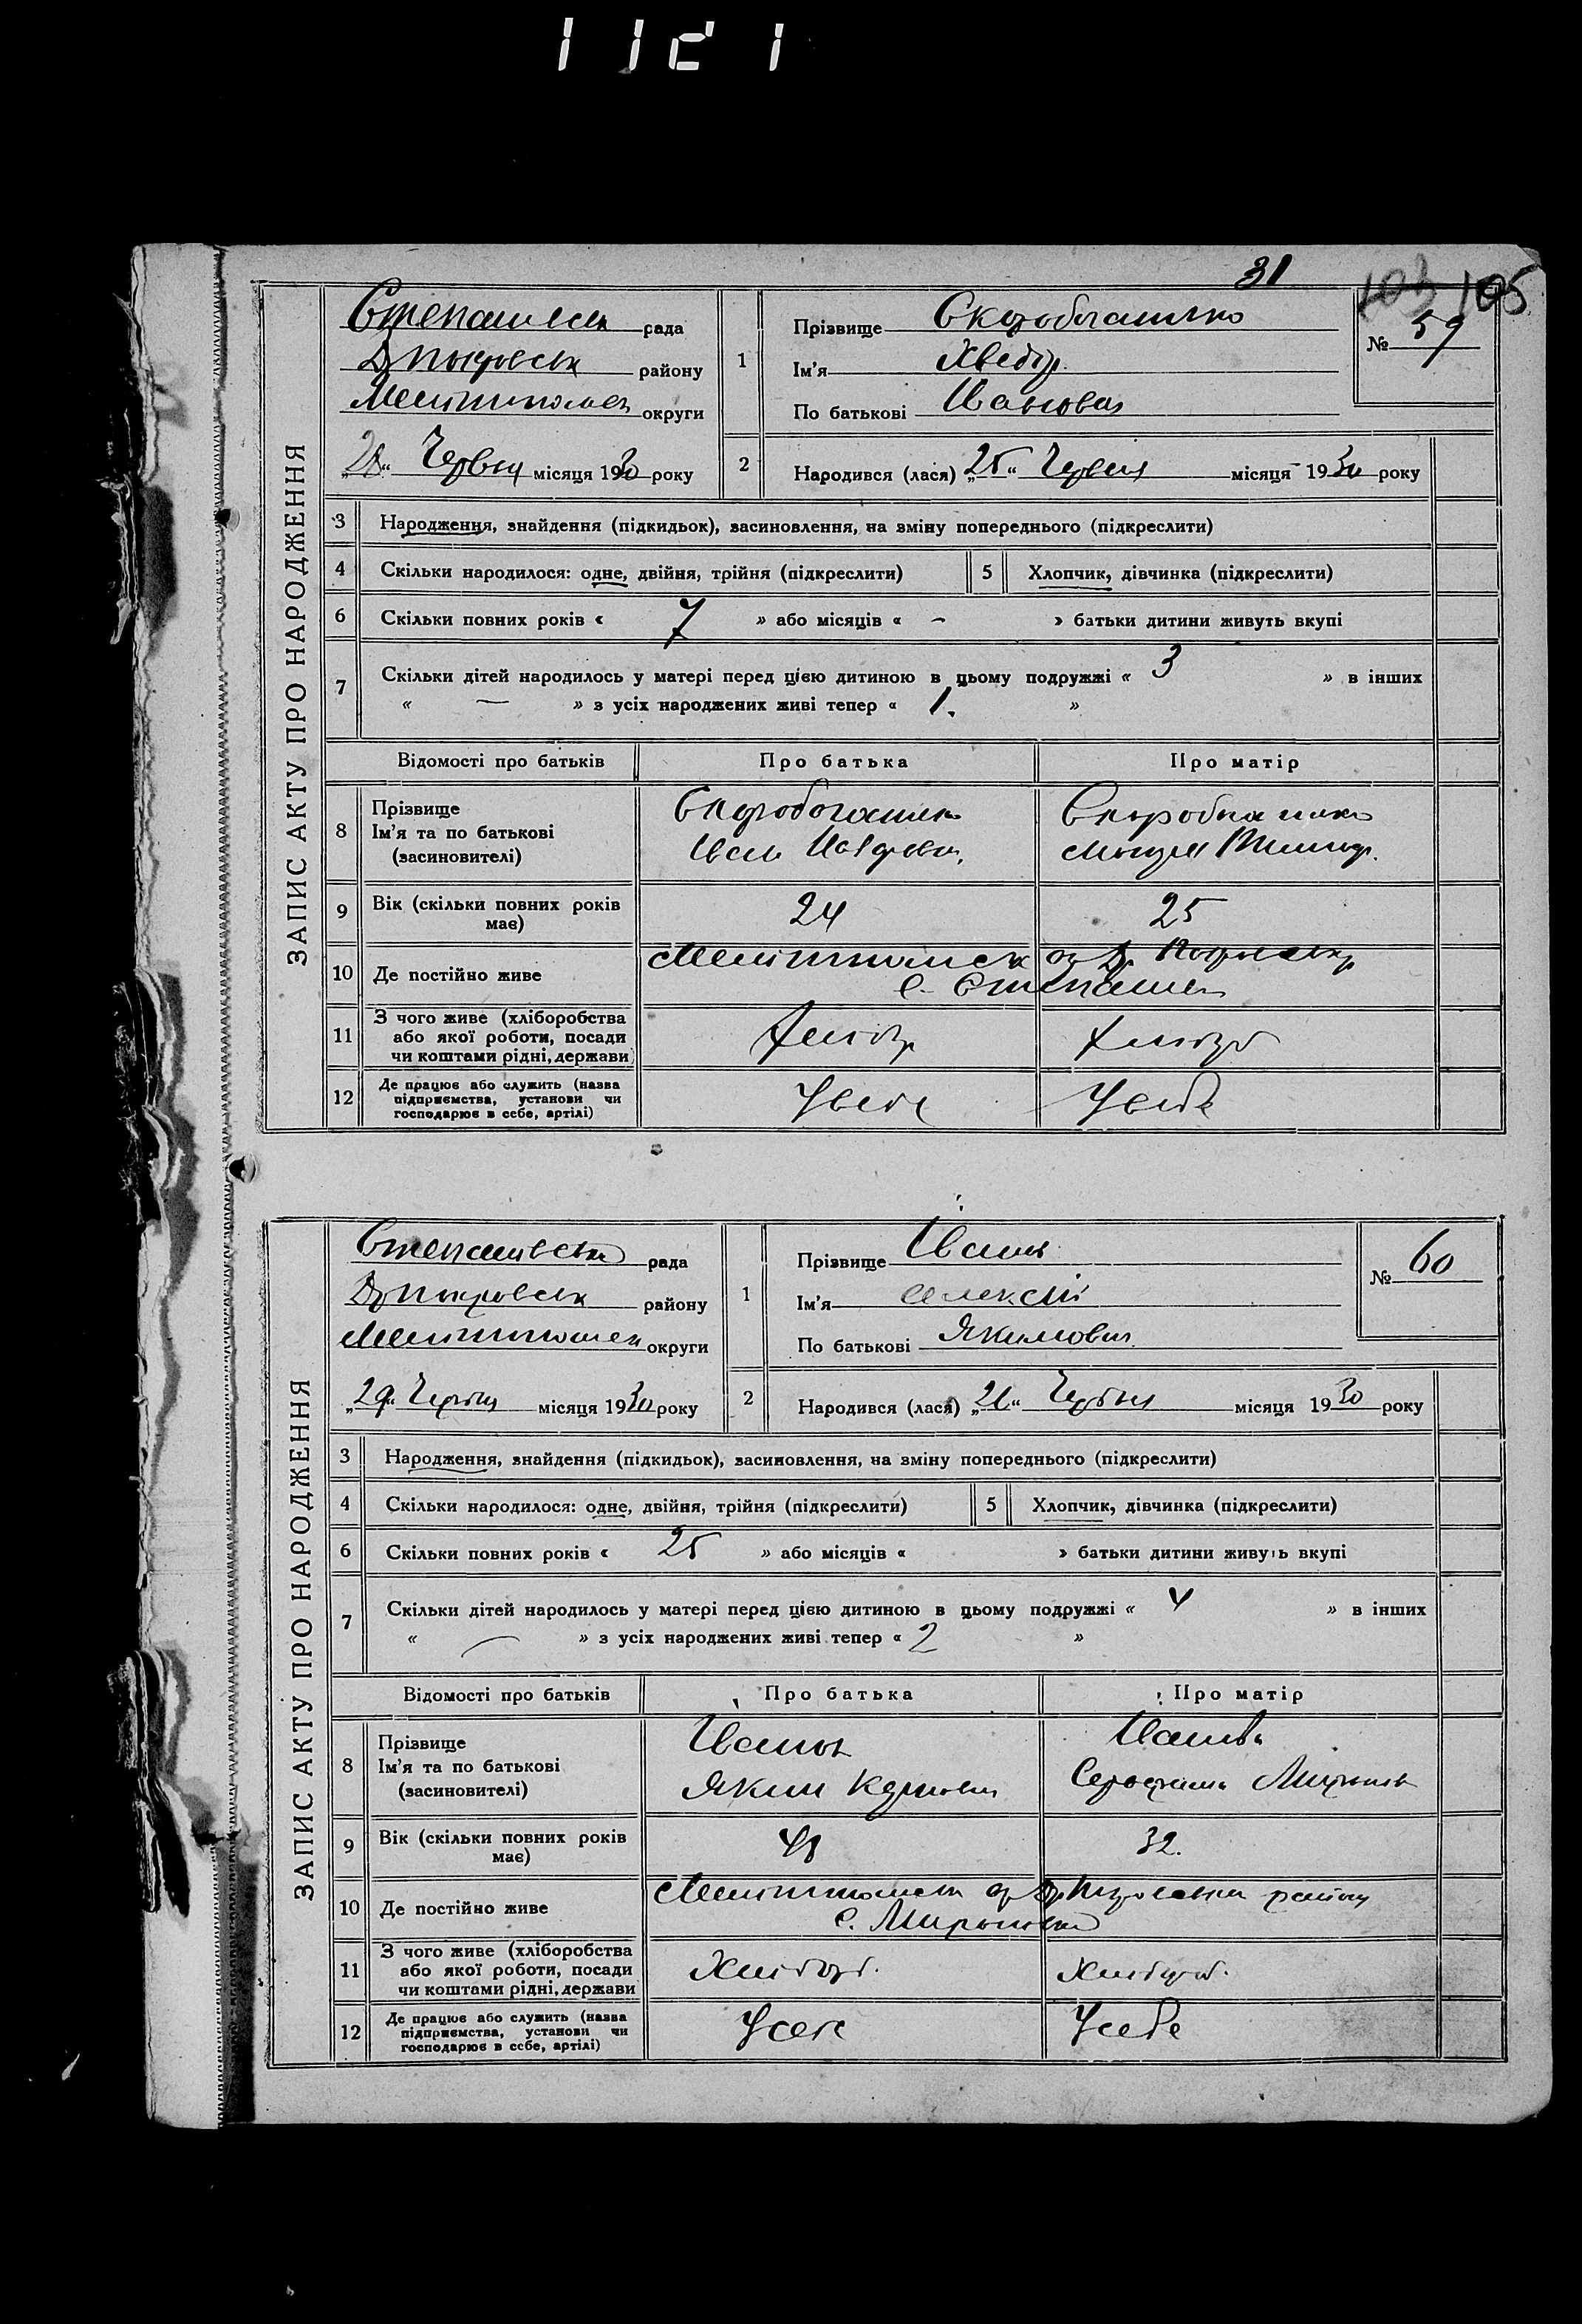 1121
31
103 105
ЗАПИС АКТУ ПРО НАРОДЖЕННЯ
рада
району
Мелітопольск округи
„28“ Червня місяця 1930 року
1
Прізвище Скоробогатько
Ім'я Хведір
По батькові Іванович
№ 59
2
Народився (лася) „25“ Червня місяця 1930 року
3 Народження, знайдення (підкидьок), засиновлення, на зміну попереднього (підкреслити)
4 Скільки народилося: одне, двійня, трійня (підкреслити) 5 Хлопчик, дівчинка (підкреслити)
6 Скільки повних років « 7 » або місяців « – » батьки дитини живуть вкупі
7 Скільки дітей народилось у матері перед цією дитиною в цьому подружжі « 3 » в інших
« — » з усіх народжених живі тепер « 1. »
Відомості про батьків Про батька Про матір
8 Прізвище
Ім'я та по батькові
(засиновителі)
Скоробогатько
Іван
Скоробогатько
9 Вік (скільки повних років
має)
24 25
10 Де постійно живе
Мелітопольск ок
с.
11 З чого живе (хліборобства
або якої роботи, посади
чи коштами рідні, держави)
12 Де працює або служить (назва
підприємства, установи чи
господарює в себе, артілі)
У себе У себе
ЗАПИС АКТУ ПРО НАРОДЖЕННЯ
Степанівська рада
району
Мелітопольск округи
„29“ Червня місяця 1930 року
1
Прізвище
Ім'я Олексій
По батькові Якимович
№ 60
2
Народився (лася) місяця 1930 року
Червня
3 Народження, знайдення (підкидьок), засиновлення, на зміну попереднього (підкреслити)
4 Скільки народилося: одне, двійня, трійня (підкреслити) 5 Хлопчик, дівчинка (підкреслити)
6 Скільки повних років « 25 » або місяців « » батьки дитини живуть вкупі
7 Скільки дітей народилось у матері перед цією дитиною в цьому подружжі « 4 » в інших
« — » з усіх народжених живі тепер « 2 »
Відомості про батьків Про батька Про матір
8 Прізвище
Ім'я та по батькові
(засиновителі)
Яким
9 Вік (скільки повних років
має)
48 32.
10 Де постійно живе
Мелітопольск ок району
с.
11 З чого живе (хліборобства
або якої роботи, посади
чи коштами рідні, держави
Хлібороб. Хлібороб.
12 Де працює або служить (назва
підприємства, установи чи
господарює в себе, артілі)
У себе У себе